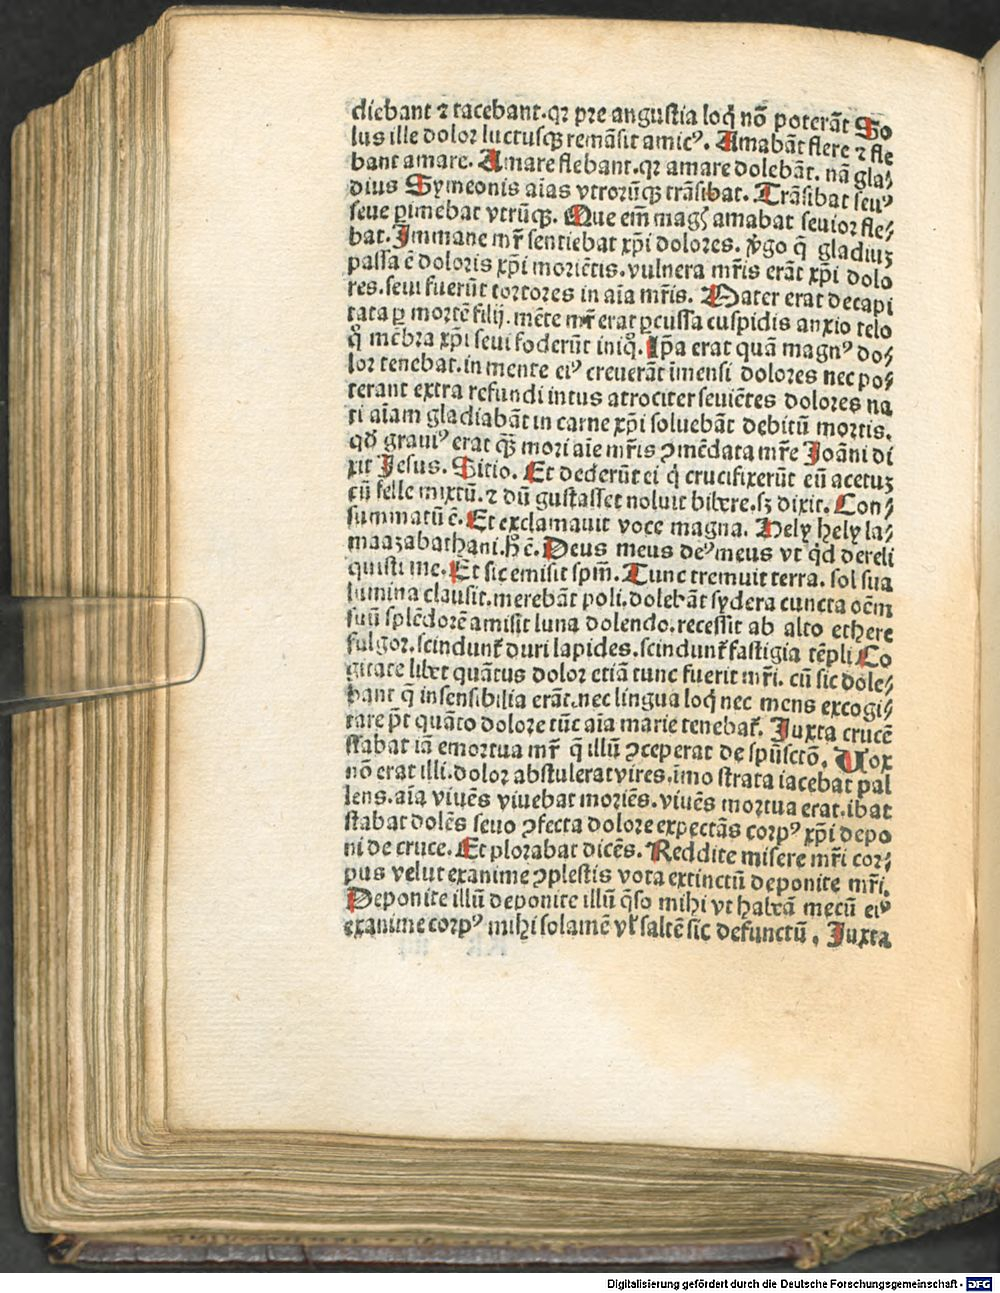 diebant ⁊ tacebant. qꝛ pre angustia loq̇ nō poterāt So
lus ille dolor luctusqꝫ remāsit amicꝰ. Amabāt flere ⁊ fle
bant amare. Amare flebant. qꝛ amare dolebāt. nā gla⸗
dius Symeonis aīas vtrorūqꝫ trāsibat. Trāsibat seuꝰ
seue p̱imebat vtrūqꝫ. Que em̄ magꝭ amabat seuior fle⸗
bat. Immane mr̄ sentiebat xp̄i dolores. v̊go q̄ gladiuꝫ
passa ē doloris xp̄i moriētis. vulnera mr̄is erāt xp̄i dolo
res. seui fuerūt tortores in aīa mr̄is. Mater erat decapi
tata ꝑ mortē filij. mēte mr̄ erat ꝑcussa cuspidis anxio telo
q̊ mēbra xp̄i seui foderūt iniq̊. Ip̄a erat quā magnꝰ do⸗
lor tenebat. in mente eiꝰ creuerāt īmensi dolores nec po⸗
terant extra refundi intus atrociter seuiētes dolores na
ti aīam gladiabāt in carne xp̄i soluebāt debitū mortis.
qđ grauiꝰ erat qꝫ mori aīe mr̄is ꝯmēdata mr̄e Joāni di
xit Jesus. Sitio. Et dederūt ei q̇ crucifixerūt eū acetuꝫ
cū felle mixtū. ⁊ dū gustasset noluit bibere. sꝫ dixit. Con⸗
summatū ē. Et exclamauit voce magna. Hely hely la⸗
maazabathani. h̊ ē. Deus meus deꝰ meus vt q̇d dereli
quisti me. Et sic emisit sp̄m. Tunc tremuit terra. sol sua
lumina clausit. merebāt poli. dolebāt sydera cuncta oēm
suū splēdorē amisit luna dolendo. recessit ab alto ethere
fulgor. scindunt̄ duri lapides. scindunt̄ fastigia tēpli Co
gitate libet quātus dolor etiā tunc fuerit mr̄i. cū sic dole⸗
bant q̄ insensibilia erāt. nec lingua loq̇ nec mens excogi⸗
tare p̄t quāto dolore tūc aīa marie tenebat̄. Juxta crucē
stabat iā emortua mr̄ q̄ illū ꝯceperat de spūsctō. Uox
nō erat illi. dolor abstulerat vires. īmo strata iacebat pal
lens. aīa viuēs viuebat moriēs. viuēs mortua erat. ibat
stabat dolēs seuo ꝯfecta dolore expectās corpꝰ xp̄i depo
ni de cruce. Et plorabat dicēs. Reddite misere mr̄i cor⸗
pus velut exanime ꝯplestis vota extinctū deponite mr̄i.
Deponite illū deponite illū q̄so mihi vt habeā mecū eiꝰ
exanime corpꝰ mihi solamē vl̄ saltē sic defunctū. Juxta
Digitalisierung gefördert durch die Deutsche Forschungsgemeinschaft - DFG